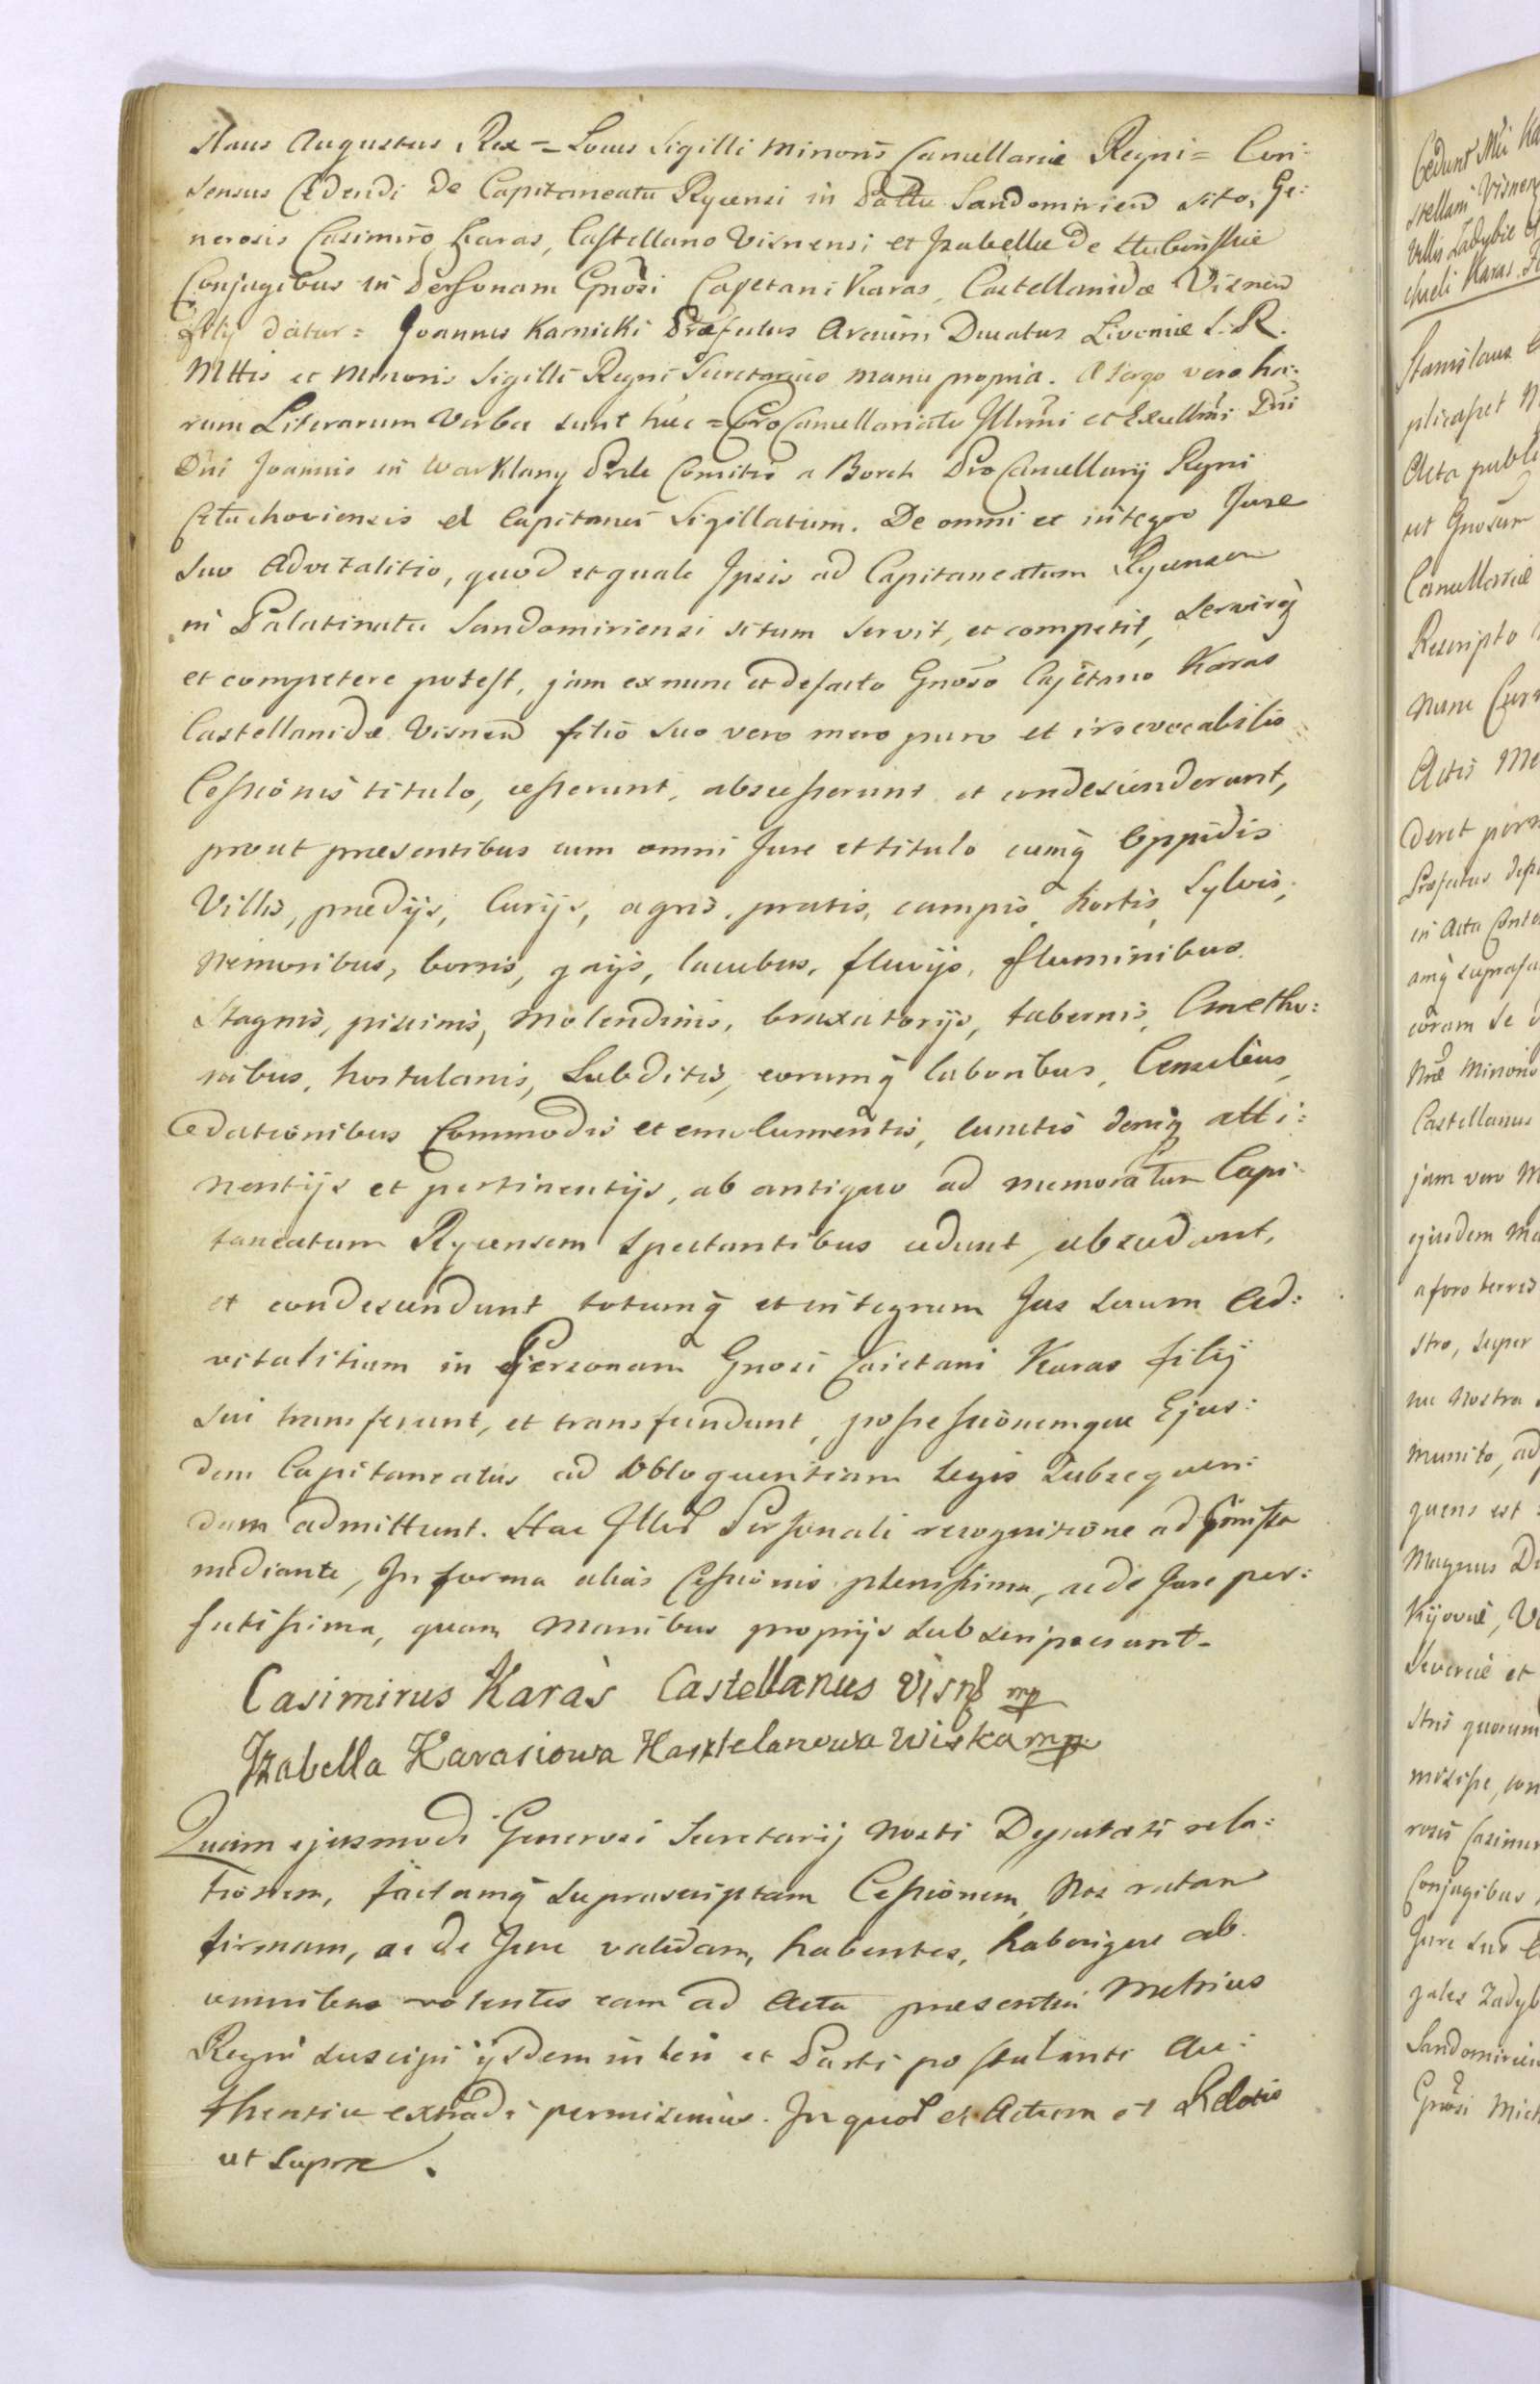 slaus Augustus Rex = Locus Sigilli Minoris Cancellariæ Regni = Con-
sensus Cedendi de Capitaneatu Rycensi in Pallu Sandomirien sito, Ge:
nerosis Casimiro Karas, Castellano Visnensi et Izabellæ de
Conjugibus in Personam Gnosi Cajetani Karas, Castellanidæ Visnen
filij datur = Joannes Kamicki Præfectus Arcium Ducatus Livoniæ S. R.
Mttis et Minoris Sigilli Regni Secretarius manu propria. A tergo vero ha:
rum Literarum Verba sunt hæc = Pro Cancellariatu Illmi et Excellmi Dni
Dni Joannis in Warklany Prele Comitis a Borch Pro Cancellarij Regni
el Capitanei Sigillatum. De omni et integro Jure
suo Advitalitio, quod et quale Ipsis ad Capitaneatum Rycensem
in Palatinatu Sandomiriensi situm servit, et competit, servireq
et competere potest, jam ex nunc et de facto Gnoso Cajetano Karas
Castellanidæ Visnen filio suo vero mero puro et irrevocabilis
Cessionis titulo, cesserunt, abscesserunt et condescenderunt,
prout præsentibus cum omni Jure et titulo cumq Oppidis
Villis, prædijs, Curijs, agris, pratis, campis, hortis, Sylvis,
Nemoribus, borris, gajis, lacubus, fluvijs, fluminibus
Stagnis, piscinis, Molendinis, braxatorijs, tabernis, Cmetho:
nibus, hortulanis, Subditis, eorumq laboribus, Censibus,
dationibus Commodis et emolumentis, cunctis deniq atti:
nentijs et pertinentijs, ab antiquo ad memoratum Capi-
taneatum Rycensem spectantibus cedunt, abscedunt,
et condescendunt totumq et integrum Jus suum Ad:
vitalitium in Personam Gnosi Caietani Karas filij
sui transferunt, et transfundunt, possessionemque Ejus:
dem Capitaneatus ad Obloquentiam legis subsequen:
dam admittunt. Hac Illor Personali recognitione ad præmissa
mediante, In forma alias Cessionis plenissima, ac de Jure per:
fectissima, quam Manibus proprijs subscripserunt-
Casimirus Karaś Castellanus Visn mp
Izabella Karasiowa Kasztelanowa Wiska mp
Quam ejusmodi Generosi Secretarij Nostri Deputati rela:
tionem, factamq suprascriptam Cessionem, Nos ratam
firmam, ac de Jure validam, habentes, haberique ab
omnibus volentes eam ad Acta præsentia Metrices
Regni suscipi ijsdem inseri et Parti postulanti Au:
thentice extradi permisimus. In quor et Actum et Datis
ut supra.
Cedunt
stellani Visnen
villis Zadybie et
chaeli Karas
Stanislaus
Acta publi
ut Gnosum
Cancellariæ
Rescripto
nunc
Actis Me
deret
Præfatus
in Acta
amq suprasc
coram se
Minoris
Castellanus
jam vero
ejusdem
a foro terres
stro, super
nu Nostra
munito, ad
quens est
Magnus Du
Kijoviæ, Vo
Severiæ et
stris quorum
misisse, con
rosis Casimir
Conjugibus
Jure suo
gales Zadyb
Sandomirien
Gnosi Mich